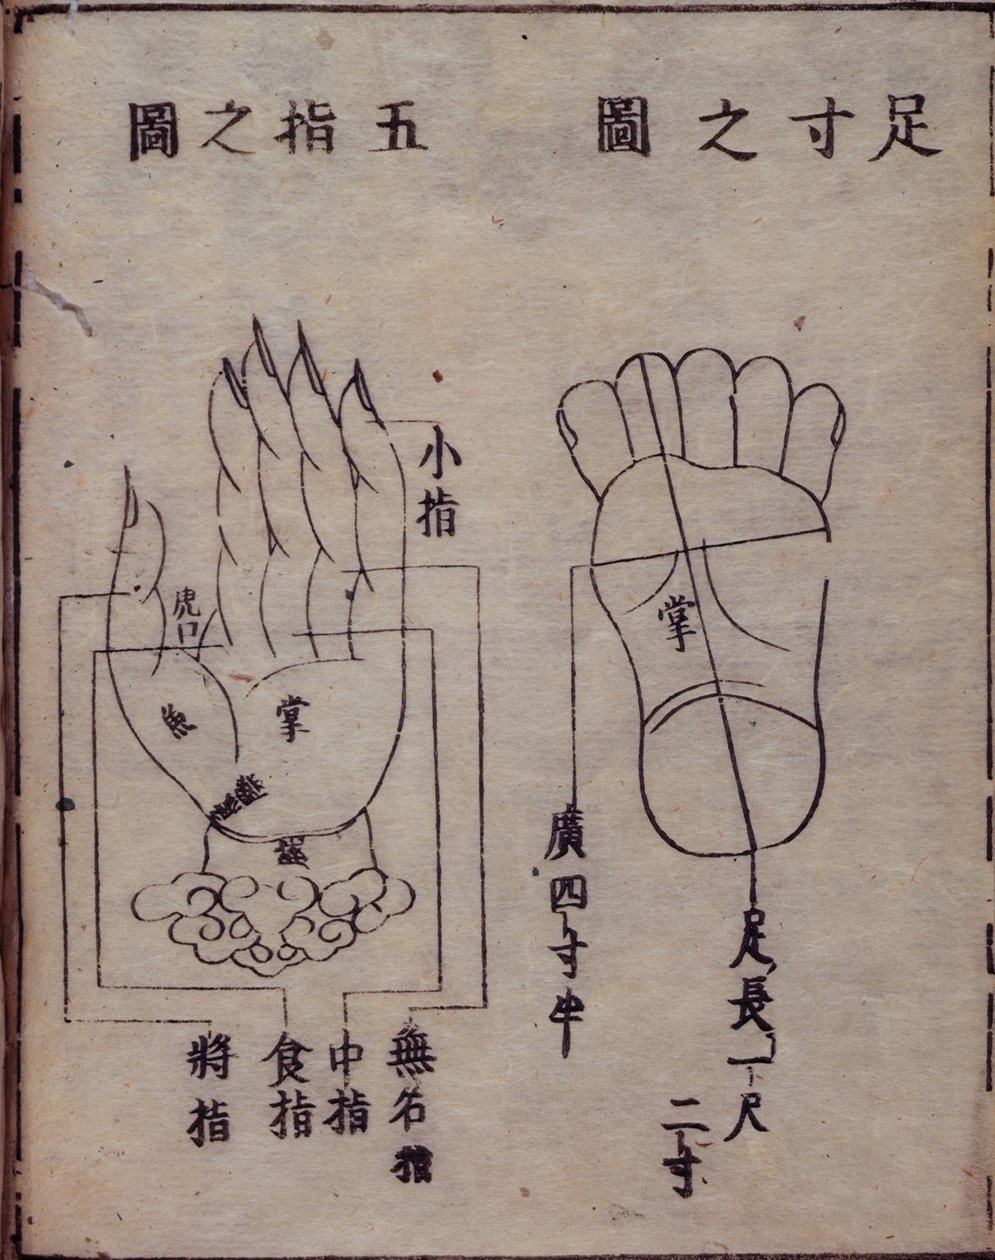 足寸之圖
掌
廣四寸半
足長一尺
二寸
五指之圖
小指
虎口
魚
掌
將指
食指
中指
無名指